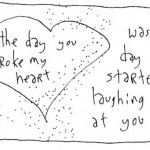 the day you
roke my
heart
was
day
starte
laughing
at you